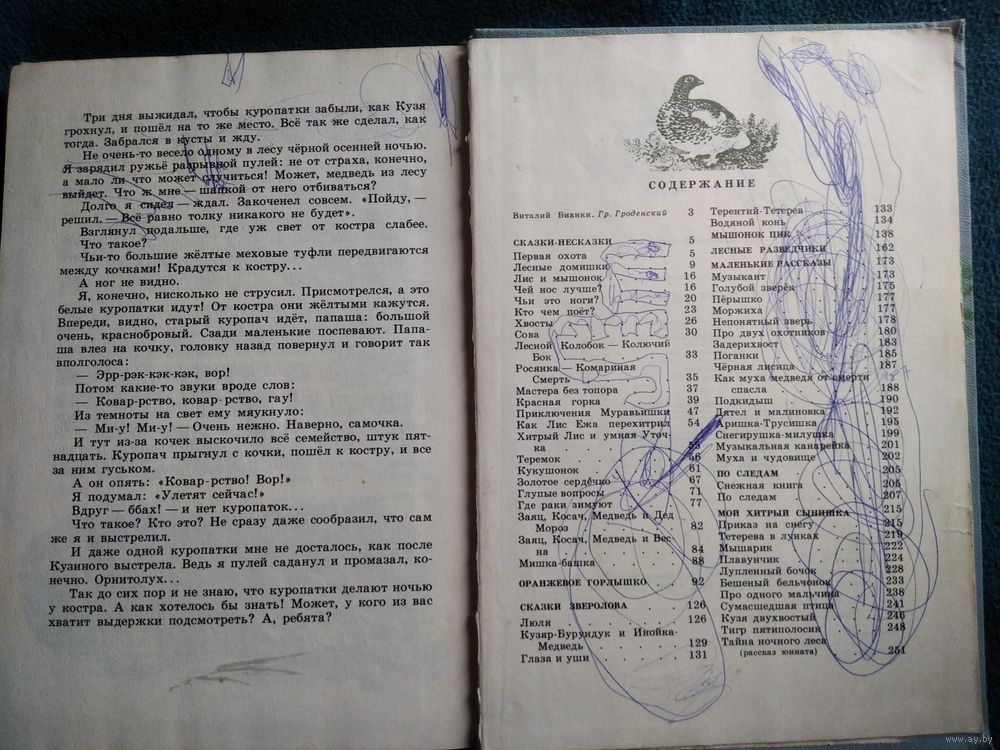 Три дня выжидал, чтобы куропатки забыли, как Кузя
грохнул, и пошёл на то же место. Всё так же сделал, как
тогда. Забрался в кусты и жду.
Не очень-то весело одному в лесу чёрной осенней ночью.
Я зарядил ружьё разрывной пулей: не от страха, конечно,
а мало ли что может случиться! Может, медведь из лесу
выйдет. Что ж мне — шапкой от него отбиваться?
Долго я сидел — ждал. Закоченел совсем. «Пойду, —
решил. — Всё равно толку никакого не будет».
Взглянул подальше, где уж свет от костра слабее.
Что такое?
Чьи-то большие жёлтые меховые туфли передвигаются
между кочками! Крадутся к костру...
А ног не видно.
Я, конечно, нисколько не струсил. Присмотрелся, а это
белые куропатки идут! От костра они жёлтыми кажутся.
Впереди, видно, старый куропач идёт, папаша: большой
очень, краснобровый. Сзади маленькие поспевают. Папа-
ша влез на кочку, головку назад повернул и говорит так
вполголоса:
— Эрр-рэк-кэк-кэк, вор!
Потом какие-то звуки вроде слов:
— Ковар-рство, ковар-рство, гау!
Из темноты на свет ему мяукнуло:
— Ми-у! Ми-у! — Очень нежно. Наверно, самочка.
И тут из-за кочек выскочило всё семейство, штук пят-
надцать. Куропач прыгнул с кочки, пошёл к костру, и все
за ним гуськом.
А он опять: «Ковар-рство! Вор!»
Я подумал: «Улетят сейчас!»
Вдруг — ббах! — и нет куропаток...
Что такое? Кто это? Не сразу даже сообразил, что сам
же я и выстрелил.
И даже одной куропатки мне не досталось, как после
Кузиного выстрела. Ведь я пулей саданул и промазал, ко-
нечно. Орнитолух...
Так до сих пор и не знаю, что куропатки делают ночью
у костра. А как хотелось бы знать! Может, у кого из вас
хватит выдержки подсмотреть? А, ребята?
СОДЕРЖАНИЕ
Виталий Бианки. Гр. Гроденский 3
СКАЗКИ-НЕСКАЗКИ 5
Первая охота 5
Лесные домишки 9
Лис и мышонок 16
Чей нос лучше? 16
Чьи это ноги? 22
Кто чем поёт? 23
Хвосты 26
Сова 30
Лесной Колобок — Колючий
Бок 33
Росянка — Комариная
Смерть 35
Мастера без топора 37
Красная горка 39
Приключения Муравьишки 47
Как Лис Ежа перехитрил 54
Хитрый Лис и умная Уточ-
ка 55
Теремок 56
Кукушонок 61
Золотое сердечко 67
Глупые вопросы 71
Где раки зимуют 77
Заяц, Косач, Медведь и Дед
Мороз 82
Заяц, Косач, Медведь и Вес-
на 84
Мишка-башка 88
ОРАНЖЕВОЕ ГОРЛЫШКО 92
СКАЗКИ ЗВЕРОЛОВА 126
Люля 126
Кузяр-Бурундук и Инойка-
Медведь 129
Глаза и уши 131
Терентий-Тетерев 133
Водяной конь 134
МЫШОНОК ПИК 138
ЛЕСНЫЕ РАЗВЕДЧИКИ 162
МАЛЕНЬКИЕ РАССКАЗЫ 173
Музыкант 173
Голубой зверёк 175
Пёрышко 177
Моржиха 177
Непонятный зверь 178
Про двух охотников 180
Задерихвост 183
Поганки 185
Чёрная лисица 187
Как муха медведя от смерти
спасла 188
Подкидыш 190
Дятел и малиновка 192
Аришка-Трусишка 195
Снегирушка-милушка 199
Музыкальная канарейка 201
Муха и чудовище 202
ПО СЛЕДАМ 205
Снежная книга 205
По следам 207
МОЙ ХИТРЫЙ СЫНИШКА 215
Приказ на снегу 215
Тетерева в лунках 219
Мышарик 222
Плавунчик 224
Лупленный бочок 228
Бешеный бельчонок 233
Про одного мальчика 238
Сумасшедшая птица 241
Кузя двухвостый 246
Тигр пятиполосик 248
Тайна ночного леса
(рассказ юнната) 251
www.ay.by